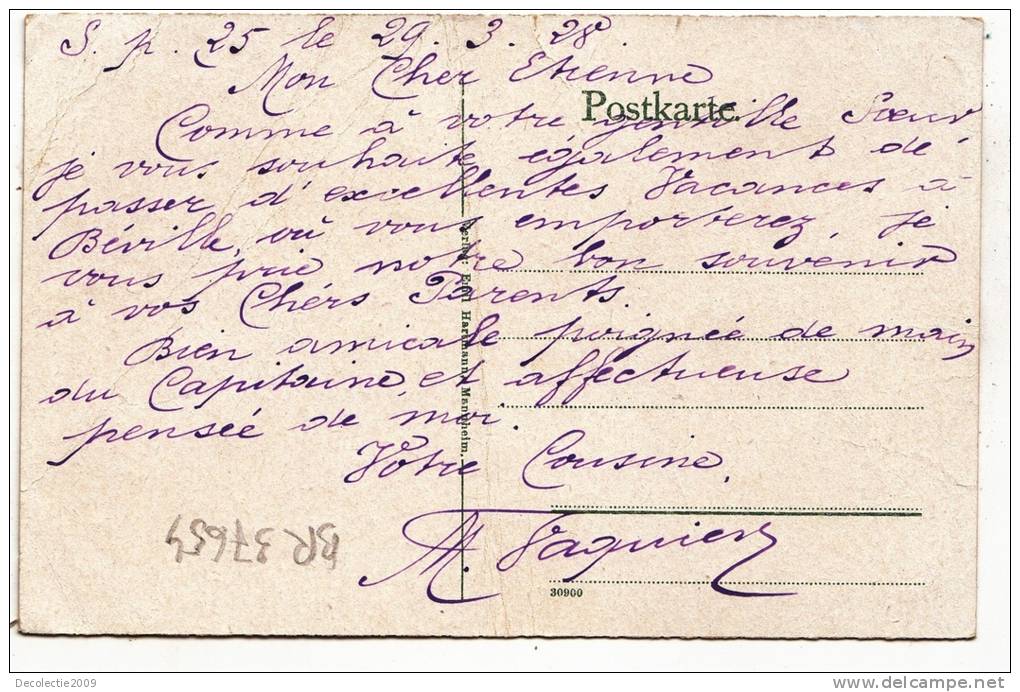 S. p. 25 le 29. 3. 28.
Mon Cher Etienne
Postkarte.
Comme à votre gentille Sœur
je vous souhaite également de
passer d'excellentes Vacances à
Béville, où vous emporterez, je
vous prie notre bon souvenir
à vos Chérs Parents.
Bien amicale poignée de main
du Capitaine, et affectueuse
pensée de moi.
Votre Cousine,
M. Vaquier
Verlag: Emil Hartmann, Mannheim.
BR 37659
30900
Decolectie2009
www.delcampe.net